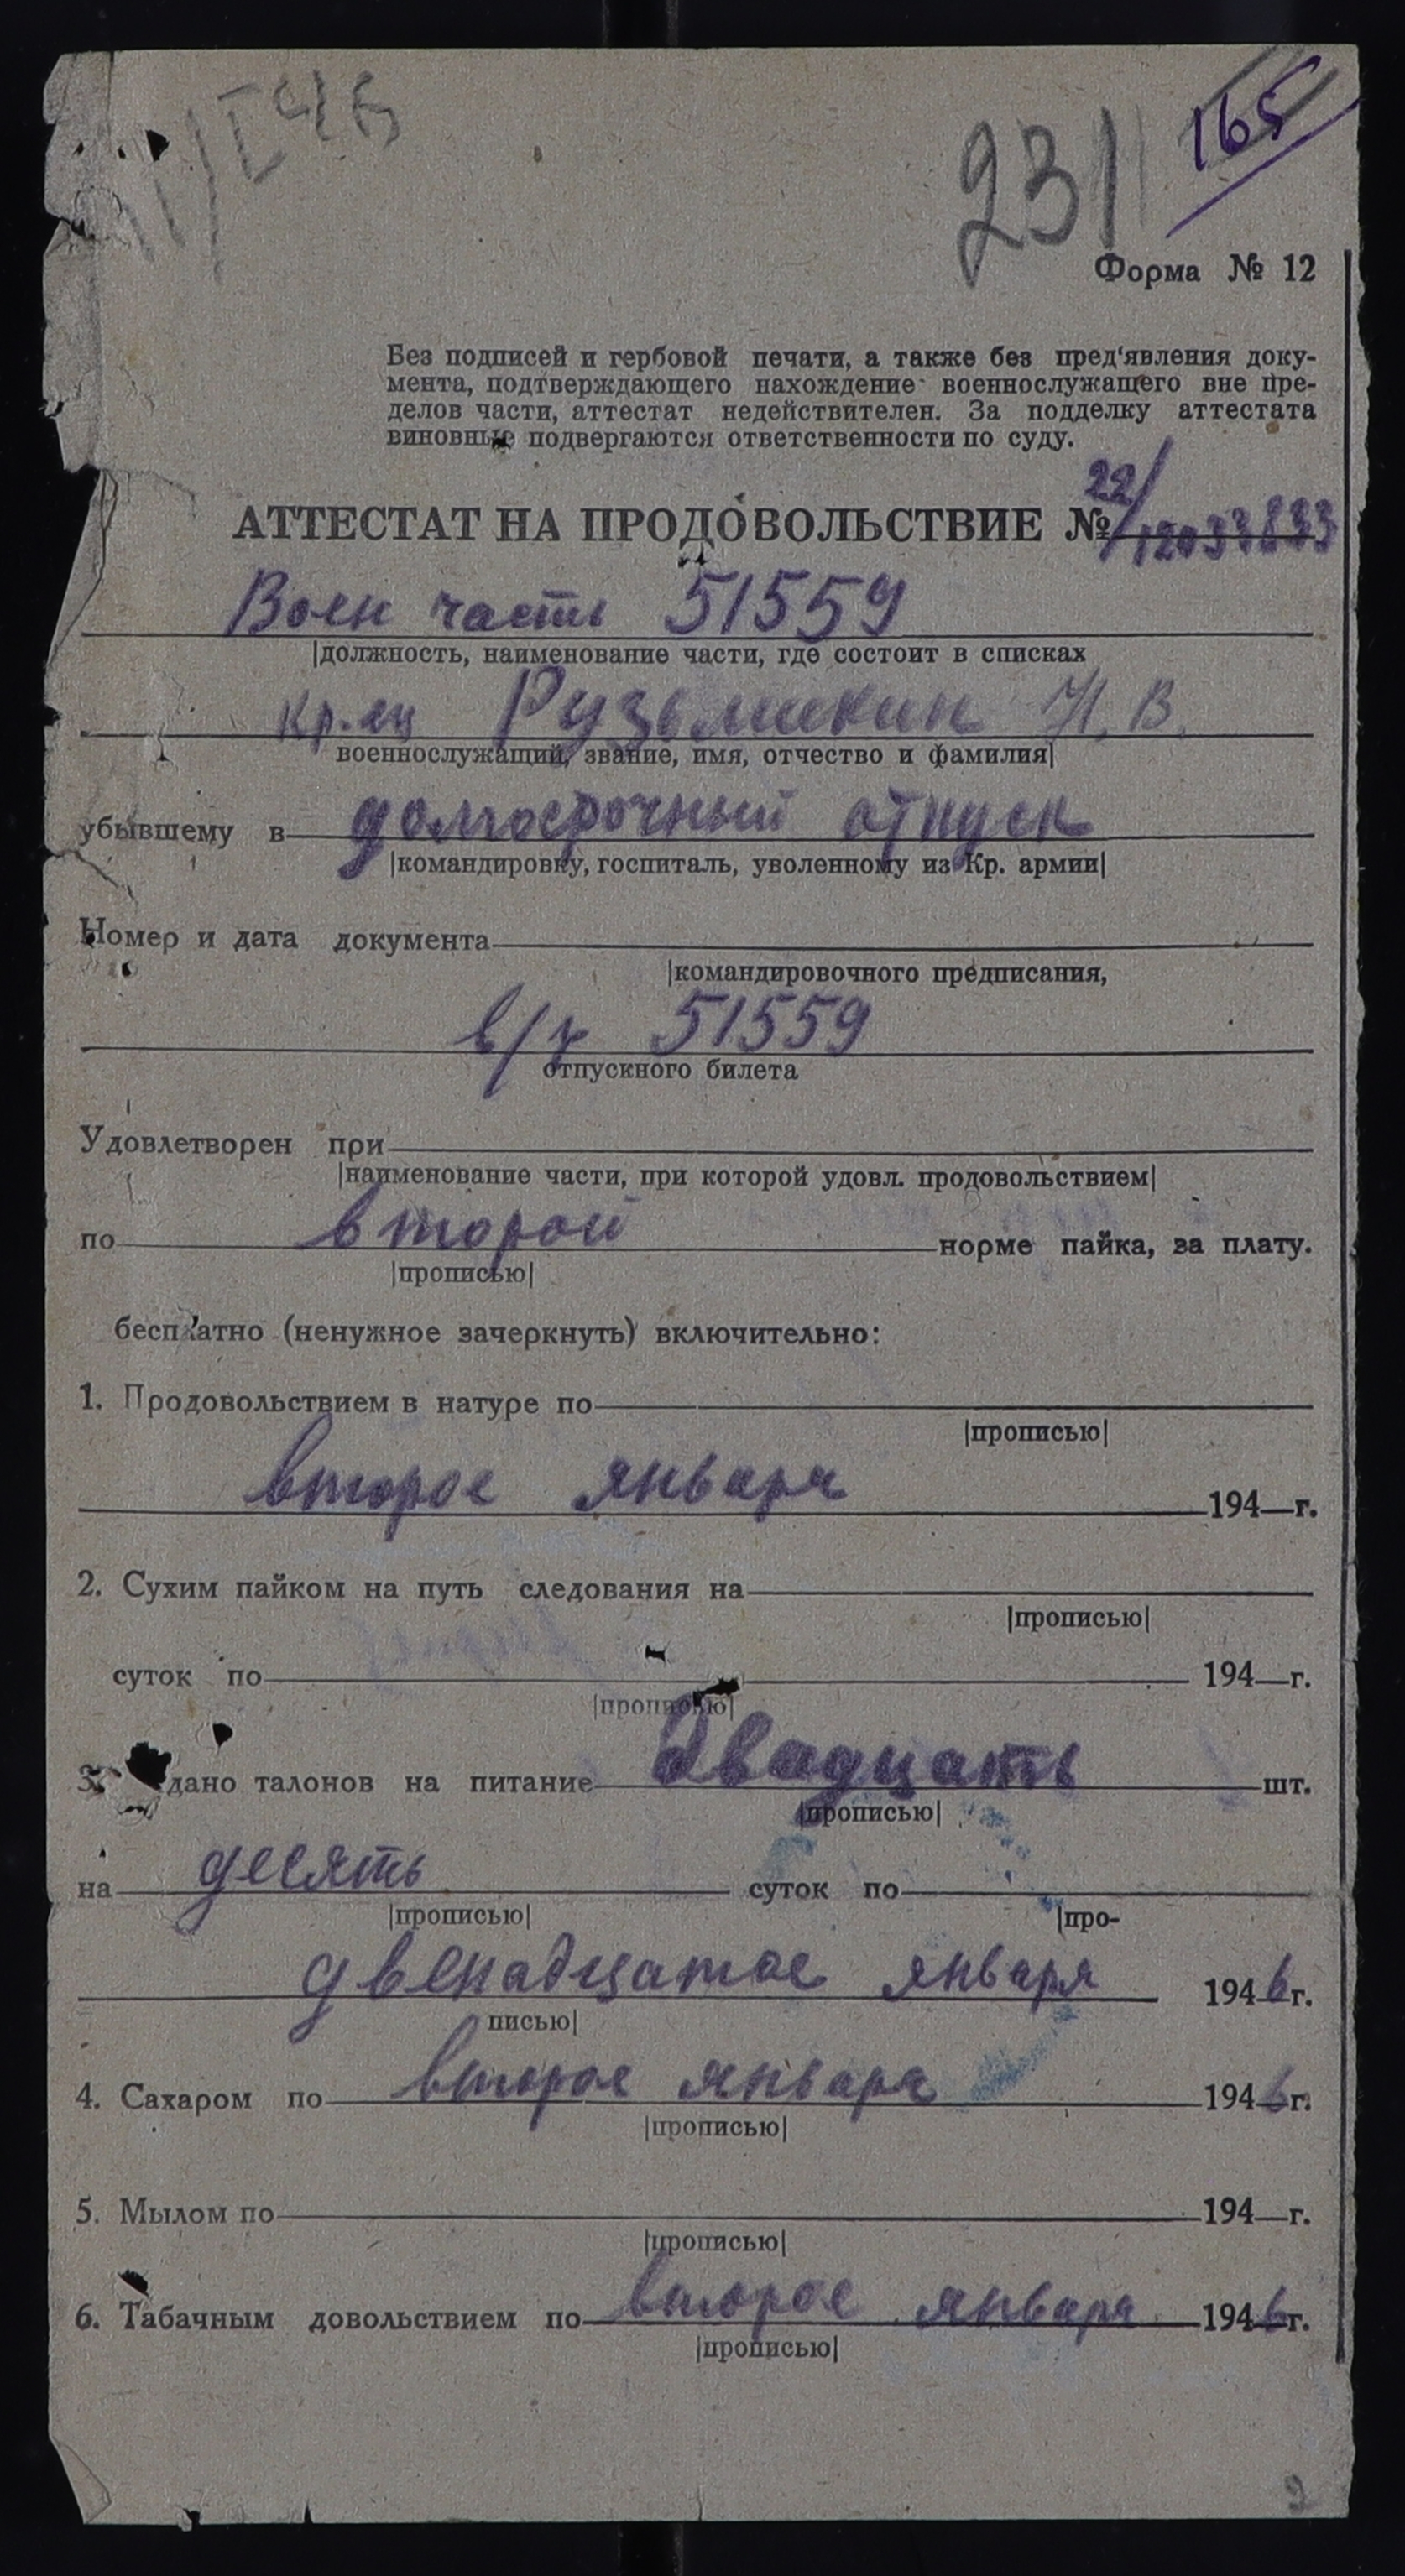 231
165
Форма № 12
Без подписей и гербовой печати, а также без пред'явления доку-
мента, подтверждающего нахождение военнослужащего вне пре-
делов части, аттестат недействителен. За подделку аттестата
виновные подвергаются ответственности по суду.
22/
АТТЕСТАТ НА ПРОДОВОЛЬСТВИЕ №
Воен часть 51559
|должность, наименование части, где состоит в списках
кр-ец Рузьмикин Н. В.
военнослужащий, звание, имя, отчество и фамилия|
убывшему в долгосрочный отпуск
|командировку, госпиталь, уволенному из Кр. армии|
Номер и дата документа
|командировочного предписания,
в/ч 51559
отпускного билета
Удовлетворен при
|наименование части, при которой удовл. продовольствием|
по второй норме пайка, за плату.
|прописью|
бесплатно (ненужное зачеркнуть) включительно:
1. Продовольствием в натуре по
|прописью|
второе января 194 г.
2. Сухим пайком на путь следования на
|прописью|
суток по 194 г.
|прописью|
3. дано талонов на питание Двадцать шт.
|прописью|
на десять суток по
|прописью| |про-
двенадцатое января 1946 г.
писью|
4. Сахаром по второе января 1946 г.
|прописью|
5. Мылом по 194 г.
|прописью|
6. Табачным довольствием по второе января 1946 г.
|прописью|
2